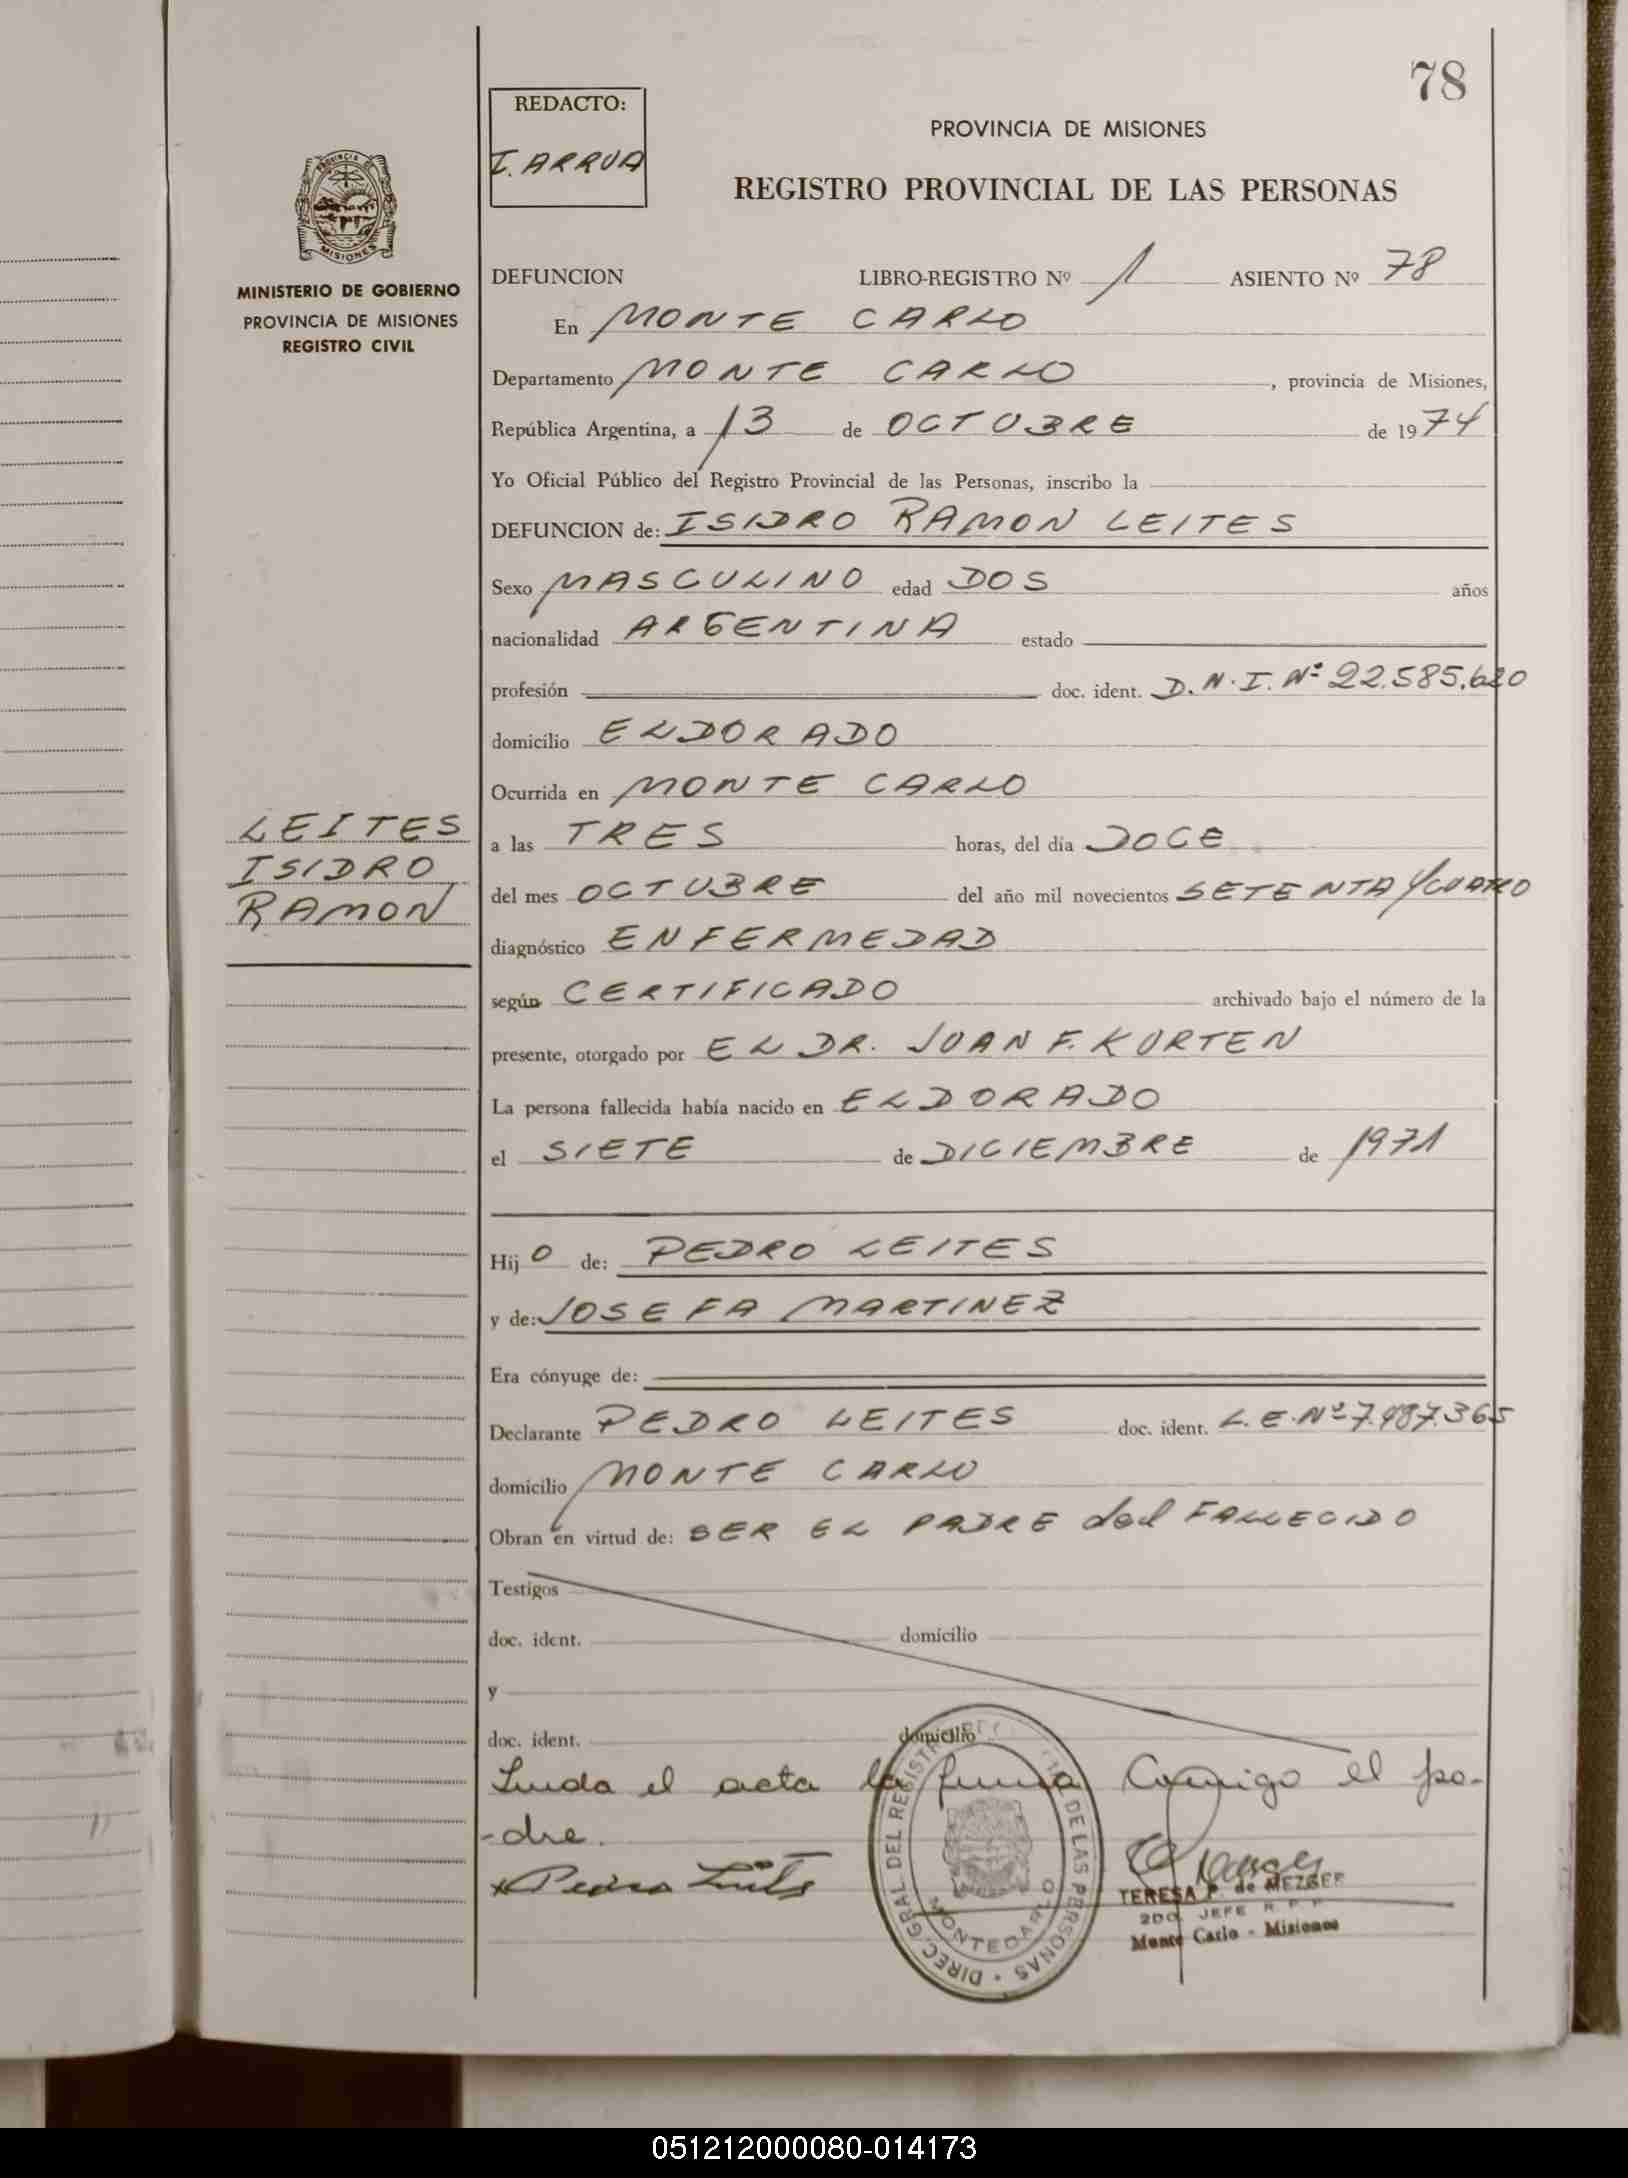 78
REDACTO:
I. ARRUA
PROVINCIA DE MISIONES
REGISTRO PROVINCIAL DE LAS PERSONAS
PROVINCIA DE
MISIONES
MINISTERIO DE GOBIERNO
PROVINCIA DE MISIONES
REGISTRO CIVIL
DEFUNCION LIBRO-REGISTRO Nº 1 ASIENTO Nº 78
En MONTE CARLO
Departamento MONTE CARLO, provincia de Misiones,
República Argentina, a 13 de OCTUBRE de 1974
Yo Oficial Público del Registro Provincial de las Personas, inscribo la
DEFUNCION de: ISIDRO RAMON LEITES
Sexo MASCULINO edad DOS años
nacionalidad ARGENTINA estado
profesión doc. ident. D.N.I. Nº 22.585.620
domicilio ELDORADO
Ocurrida en MONTE CARLO
LEITES
ISIDRO
RAMON
a las TRES horas, del día DOCE
del mes OCTUBRE del año mil novecientos SETENTA Y CUATRO
diagnóstico ENFERMEDAD
según CERTIFICADO archivado bajo el número de la
presente, otorgado por EL DR. JUAN F. KURTEN
La persona fallecida había nacido en ELDORADO
el SIETE de DICIEMBRE de 1971
Hijo de: PEDRO LEITES
y de: JOSEFA MARTINEZ
Era cónyuge de:
Declarante PEDRO LEITES doc. ident. L.E. Nº 7.487.365
domicilio MONTE CARLO
Obran en virtud de: SER EL PADRE del FALLECIDO
Testigos
doc. ident. domicilio
y
doc. ident. domicilio
Leida el acta la firma Conmigo el pa-
-dre.
x Pedro Leites
DIREC. GRAL DEL REGISTRO DE LAS PERSONAS
MONTECARLO
TERESA P. de MEZGER
2DO. JEFE R. P. P.
Monte Carlo - Misiones
051212000080-014173